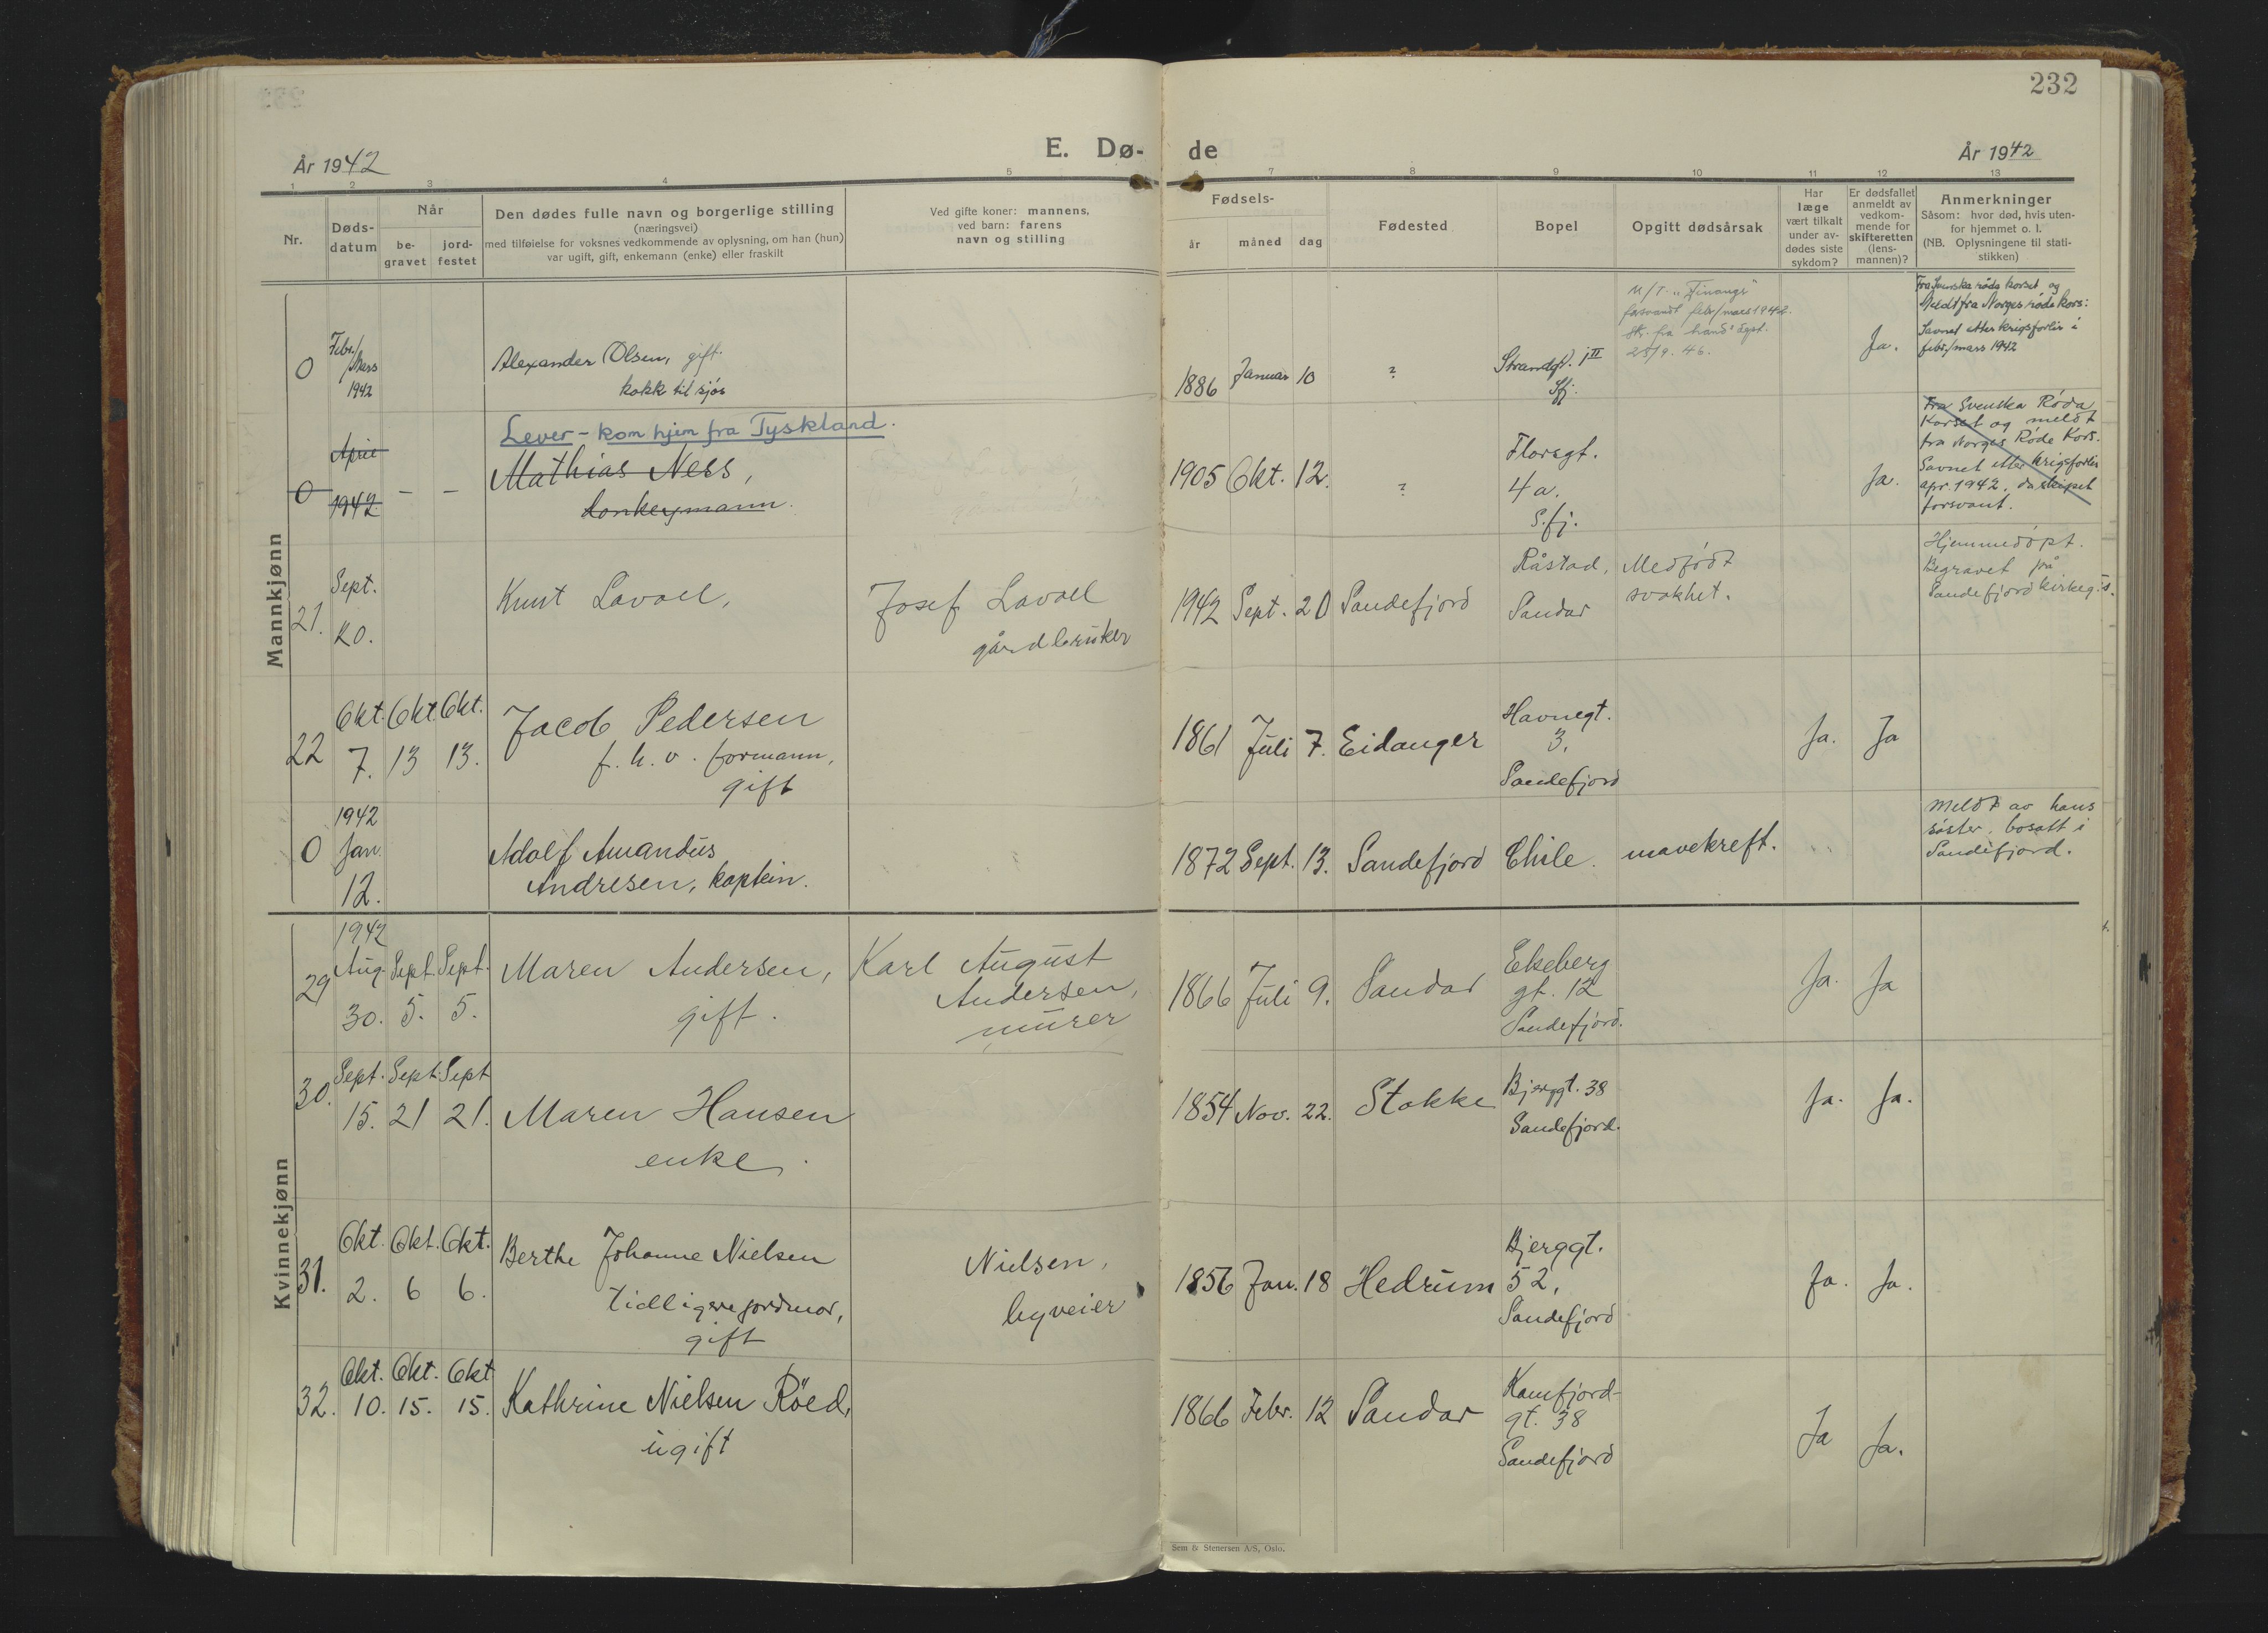 232
E. Dø- de
År 1942
År 1942
1 2 3 4 5 6 7 8 9 10 11 12 13
Nr.
Døds-
datum
Når
be-
gravet
jord-
festet
Den dødes fulle navn og borgerlige stilling
(næringsvei)
med tilføielse for voksnes vedkommende av oplysning, om han (hun)
var ugift, gift, enkemann (enke) eller fraskilt
Ved gifte koner: mannens,
ved barn: farens
navn og stilling
Fødsels-
år måned dag
Fødested
Bopel
Opgitt dødsårsak
Har
læge
vært tilkalt
under av-
dødes siste
sykdom?
Er dødsfallet
anmeldt av
vedkom-
mende for
skifteretten
(lens-
mannen)?
Anmerkninger
Såsom: hvor død, hvis uten-
for hjemmet o. l.
(NB. Oplysningene til stati-
stikken)
Mannkjønn
0
Febr./
Mars
1942
Alexander Olsen, gift.
kokk til sjøs
1886 Januar 10
?
Strandgt. 1 II
Sfj.
M/T "Finanger"
forsvandt febr/mars 1942.
25/9. 46.
Ja.
Fra Svenska røda korset og
Meldt fra Norges røde kors:
Savnet etter krigsforlis i
febr./mars 1942
0
April
1942
- -
Lever - kom hjem fra Tyskland.
Mathias Ness,
donkeymann.
1905 Okt. 12.
?
Florsgt.
4 a.
S.fj.
Ja.
Fra Svenska Røda
Korset og meldt
fra Norges Røde Kors.
Savnet etter krigsforlis
apr. 1942, da skipet
forsvant.
21.
Sept.
20.
Knut Lavoll,
Josef Lavoll
gårdbruker
1942 Sept. 20 Sandefjord
Råstad,
Sandar
Medfødt
svakhet.
Hjemmedøpt.
Begravet på
Sandefjord kirkeg.
22
Okt. Okt. Okt.
7. 13 13.
Jacob Pedersen
f. h. v. formann,
gift
1861 Juli 7. Eidanger
Havnegt.
3,
Sandefjord
Ja. Ja
0
1942
Jan.
12.
Adolf Amandus
Andresen, kaptein.
1872 Sept. 13. Sandefjord Chile. mavekreft.
Meldt av hans
søster, bosatt i
Sandefjord.
Kvinnekjønn
29
1942
Aug. Sept. Sept.
30. 5. 5.
Maren Andersen,
gift.
Karl August
Andersen,
murer
1866 Juli 9. Sandar
Ekeberg
gt. 12
Sandefjord.
Ja. Ja
30.
Sept. Sept. Sept
15. 21 21.
Maren Hansen
enke.
1854 Nov. 22. Stokke
Bjerggt. 38
Sandefjord.
Ja. Ja.
31.
Okt. Okt. Okt.
2. 6 6.
Berthe Johanne Nielsen
tidligere jordmor,
gift
Nielsen,
byveier
1856 Jan. 18 Hedrum
Bjerggt.
52,
Sandefjord
Ja. Ja.
32.
Okt. Okt. Okt
10. 15. 15.
Kathrine Nielsen Röed,
ugift
1866 Febr. 12 Sandar
Kamfjord-
gt. 38
Sandefjord
Ja Ja.
Sem & Stenersen A/S, Oslo.